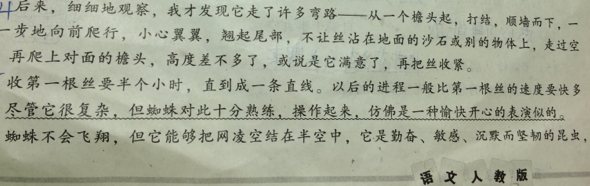 后来，细细地观察，我才发现它走了许多弯路——从一个檐头起，打结，顺墙而下，一
一步地向前爬行，小心翼翼，翘起尾部，不让丝沾在地面的沙石或别的物体上，走过空
再爬上对面的檐头，高度差不多了，或说是它满意了，再把丝收紧。
收第一根丝要半个小时，直到成一条直线。以后的进程一般比第一根丝的速度要快多
尽管它很复杂，但蜘蛛对此十分熟练，操作起来，仿佛是一种愉快开心的表演似的。
蜘蛛不会飞翔，但它能够把网凌空结在半空中，它是勤奋、敏感、沉默而坚韧的昆虫，
语文人教版